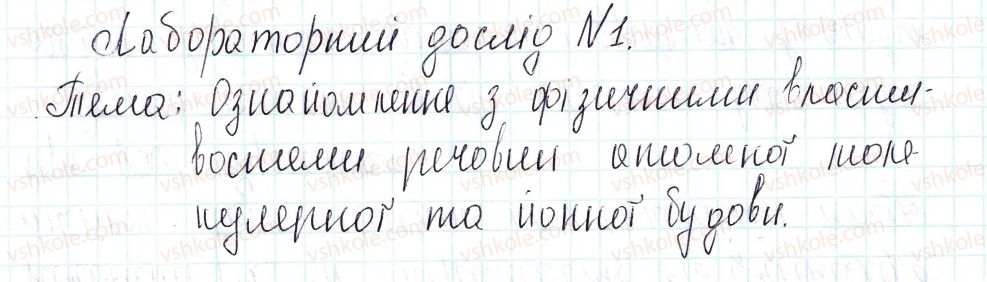 Лабораторний дослід №1.
Тема: Ознайомлення з фізичними власти-
востями речовин атомної моле
кулярної та йонної будови.